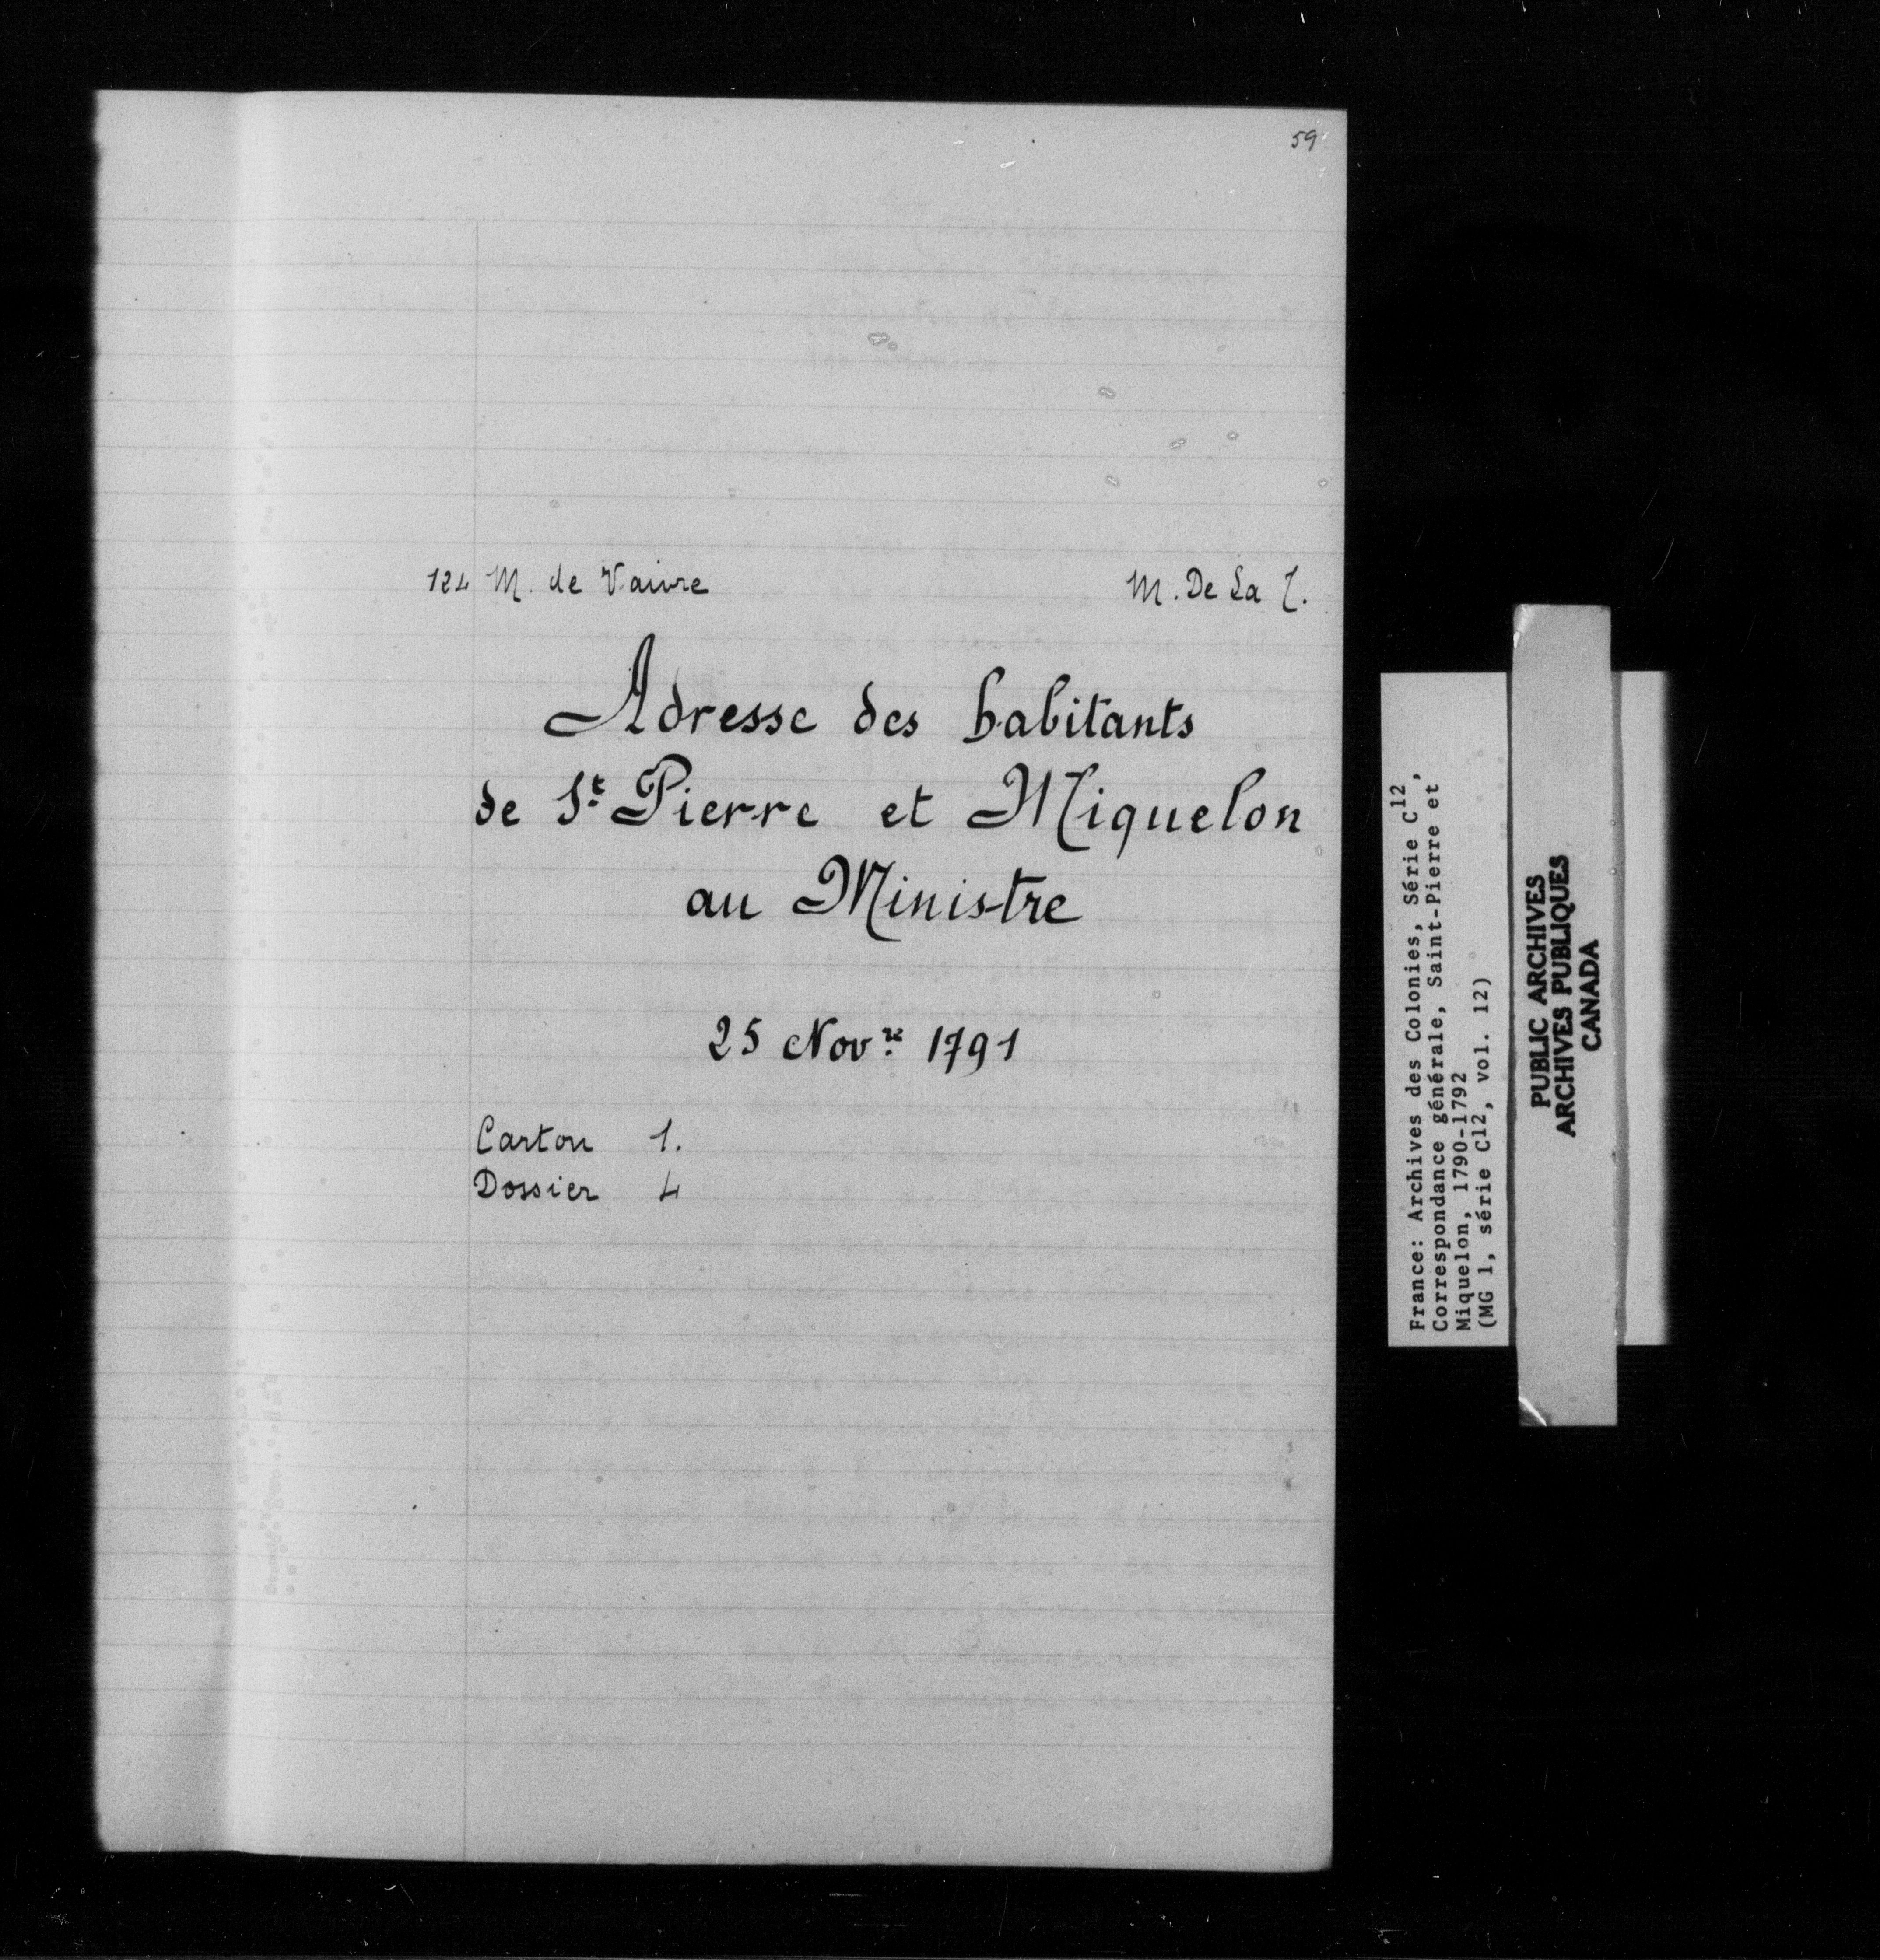 59
124 M. de Vaivre M. De La
Adresse des habitants
de St. Pierre et Miquelon
au Ministre
25 Nov.re 1791
Carton 1.
Dossier 4
France: Archives des Colonies, Série C12,
Correspondance générale, Saint-Pierre et
Miquelon, 1790-1792
(MG 1, série C12, vol. 12)
PUBLIC ARCHIVES
ARCHIVES PUBLIQUES
CANADA